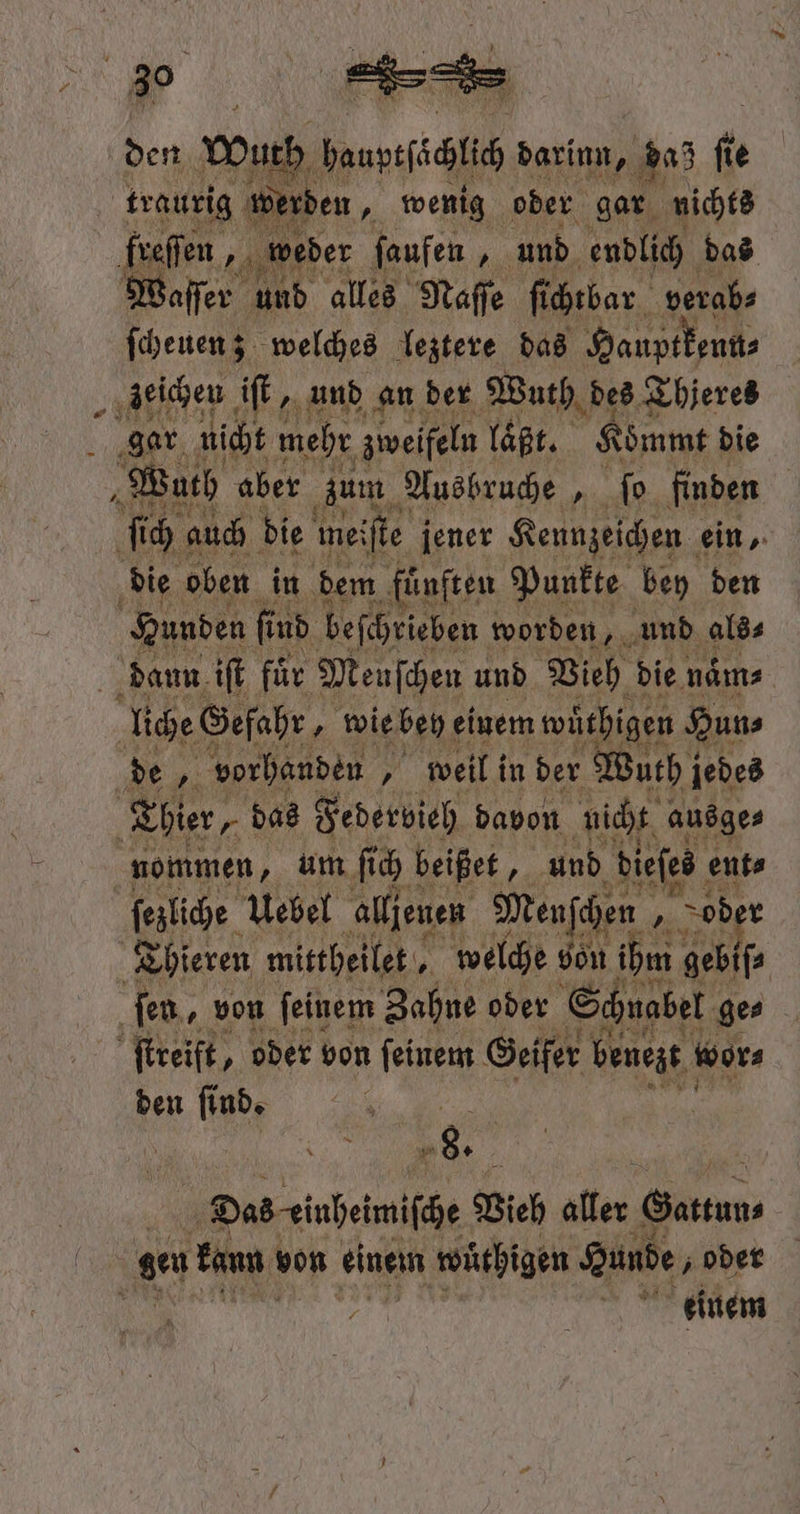 30
den Wuth hauptſaͤchlich darinn, daß ſie
traurig werden, wenig oder gar nichts
freſſen, weder ſaufen, und endlich das
Waſſer und alles Naſſe ſichtbar verab⸗
ſcheuen; welches leztere das Hauptkenn⸗
zeichen iſt, und an der Wuth des Thieres
gar nicht mehr zweifeln laͤßt. Koͤmmt die
Wuth aber zum Ausbruche, ſo finden
ſich auch die meiſte jener Kennzeichen ein,
die oben in dem fuͤnften Punkte bey den
Hunden ſind beſchrieben worden, und als⸗
dann iſt fuͤr Menſchen und Vieh die naͤm⸗
liche Gefahr, wie bey einem wuͤthigen Hun⸗
de, vorhanden, weil in der Wuth jedes
Thier, das Federvieh davon nicht ausge⸗
nommen, um ſich beißet, und dieſes ent⸗
ſezliche Uebel alljenen Menſchen, oder
Thieren mittheilet, welche von ihm gebiſ⸗
ſen, von ſeinem Zahne oder Schnabel ge⸗
ſtreift, oder von ſeinem Geifer benezt wor⸗
den ſind.
8.
Das einheimiſche Vieh aller Gattun⸗
gen kann von einem wuͤthigen Hunde, oder
einem